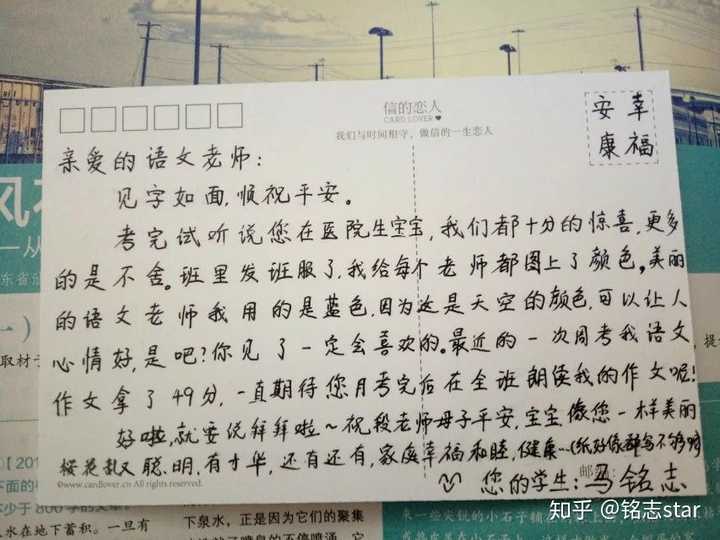 信的恋人
CARD LOVER
我们与时间相守，做信的一生恋人
安 幸
康 福
亲爱的语文老师：
见字如面，顺祝平安。
考完试听说您在医院生宝宝，我们都十分的惊喜，更多
的是不舍。班里发班服了，我给每个老师都图上了颜色。美丽
的语文老师我用的是蓝色，因为这是天空的颜色，可以让人
心情好，是吧？你见了一定会喜欢的。最近的一次周考我语文
作文拿了49分，一直期待您月考完后在全班朗读我的作文呢！
好啦，就要说拜拜啦～祝段老师母子平安，宝宝像您一样美丽
又聪明，有才华，还有还有，家庭幸福和睦，健康…（纸好像都写不够啊）
©www.cardlover.cn All rights reserved.
邮
您的学生：马铭志
知乎 @铭志star
风
一从
东省
一）
取材于
【201
下面的
不少于800字的文章。
水在地下蓄积。一旦有
下泉水，正是因为它们的聚集